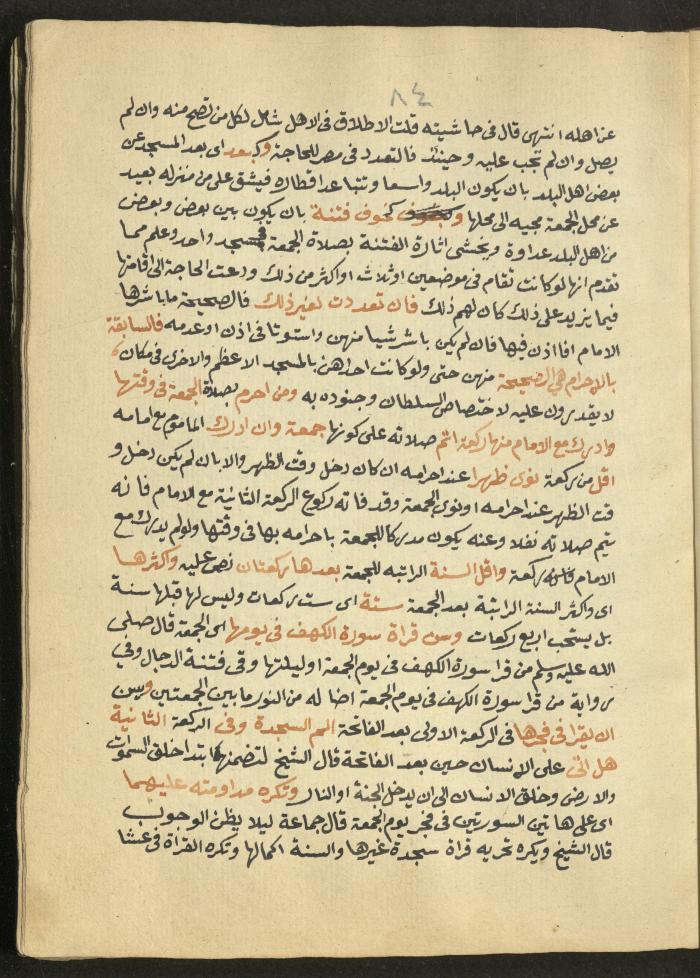 ٨٤
عن اهله انتهى قال في حاشيته قلت الاطلاق في الاهل شامل لكل من تصح منه وان لم
يصل وان لم تجب عليه وحينئذ فالتعدد في مصر للحاجة وكبعد اى بعد المسجد عن
بعض اهل البلد بان يكون البلد واسعا وتتباعد اقطاره فيشق على من منزله بعيد
عن محل الجمعة مجيه الى محلها و كخوف فتنة بان يكون بين بعض وبعض
من اهل البلد عداوة ويخشى اثارة الفتنة بصلاة الجمعة في مسجد واحد وعلم مما
تقدم انها لو كانت تقام في موضعين او ثلاث او اكثر من ذلك ودعت الحاجة الى اقامتها
فيما يزيد على ذلك كان لهم ذلك فان تعددت لغير ذلك فالصحيحة ما باشرها
الامام او اذن فيها فان لم يكن باشر شيا منهن واستوتا في اذن او عدمه فالسابقة
بالاحرام هي الصحيحة منهن حتى ولو كانت احداهن بالمسجد الاعظم والاخرى في مكان
لا يقدرون عليه لاختصاص السلطان وجنوده به ومن احرم بصلاة الجمعة في وقتها
وادرك مع الامام منها ركعة اتم صلاته على كونها جمعة وان ادرك الماموم مع امامه
اقل من ركعة نوى ظهرا عند احرامه ان كان دخل وقت الظهر والا بان لم يكن دخل و
قت الظهر عند احرامه او نوى الجمعة وقد فاته ركوع الركعة الثانية مع الامام فانه
يتم صلاته نفلا وعنه يكون مدركا للجمعة باحرامه بها في وقتها ولو لم يدرك مع
الامام ركعة واقل السنة الراتبه للجمعة بعدها ركعتان نص عليه واكثرها
اى واكثر السنة الراتبة بعد الجمعة ستة اى ست ركعات وليس لها قبلها سنة
بل يستحب اربع ركعات وسن قراة سورة الكهف في يومها اى الجمعة قال صلى
الله عليه وسلم من قرا سورة الكهف في يوم الجمعة او ليلتها وقي فتنة الدجال وفي
رواية من قرا سورة الكهف في يوم الجمعة اضا له من النور ما بين الجمعتين ويسن
ان يقرا في فجرها في الركعة الاولى بعد الفاتحة الم السجدة وفي الركعة الثانية
هل اتى على الانسان حين بعد الفاتحة قال الشيخ لتضمنها ابتدا خلق السموات
والارض وخلق الانسان الى ان يدخل الجنة او النار وتكره مداومته عليهما
اى على هاتين السورتين في فجر يوم الجمعة قال جماعة ليلا يظن الوجوب
قال الشيخ ويكره تحريه قراة سجدة غيرها والسنة اكمالها وتكره القراة في عشا